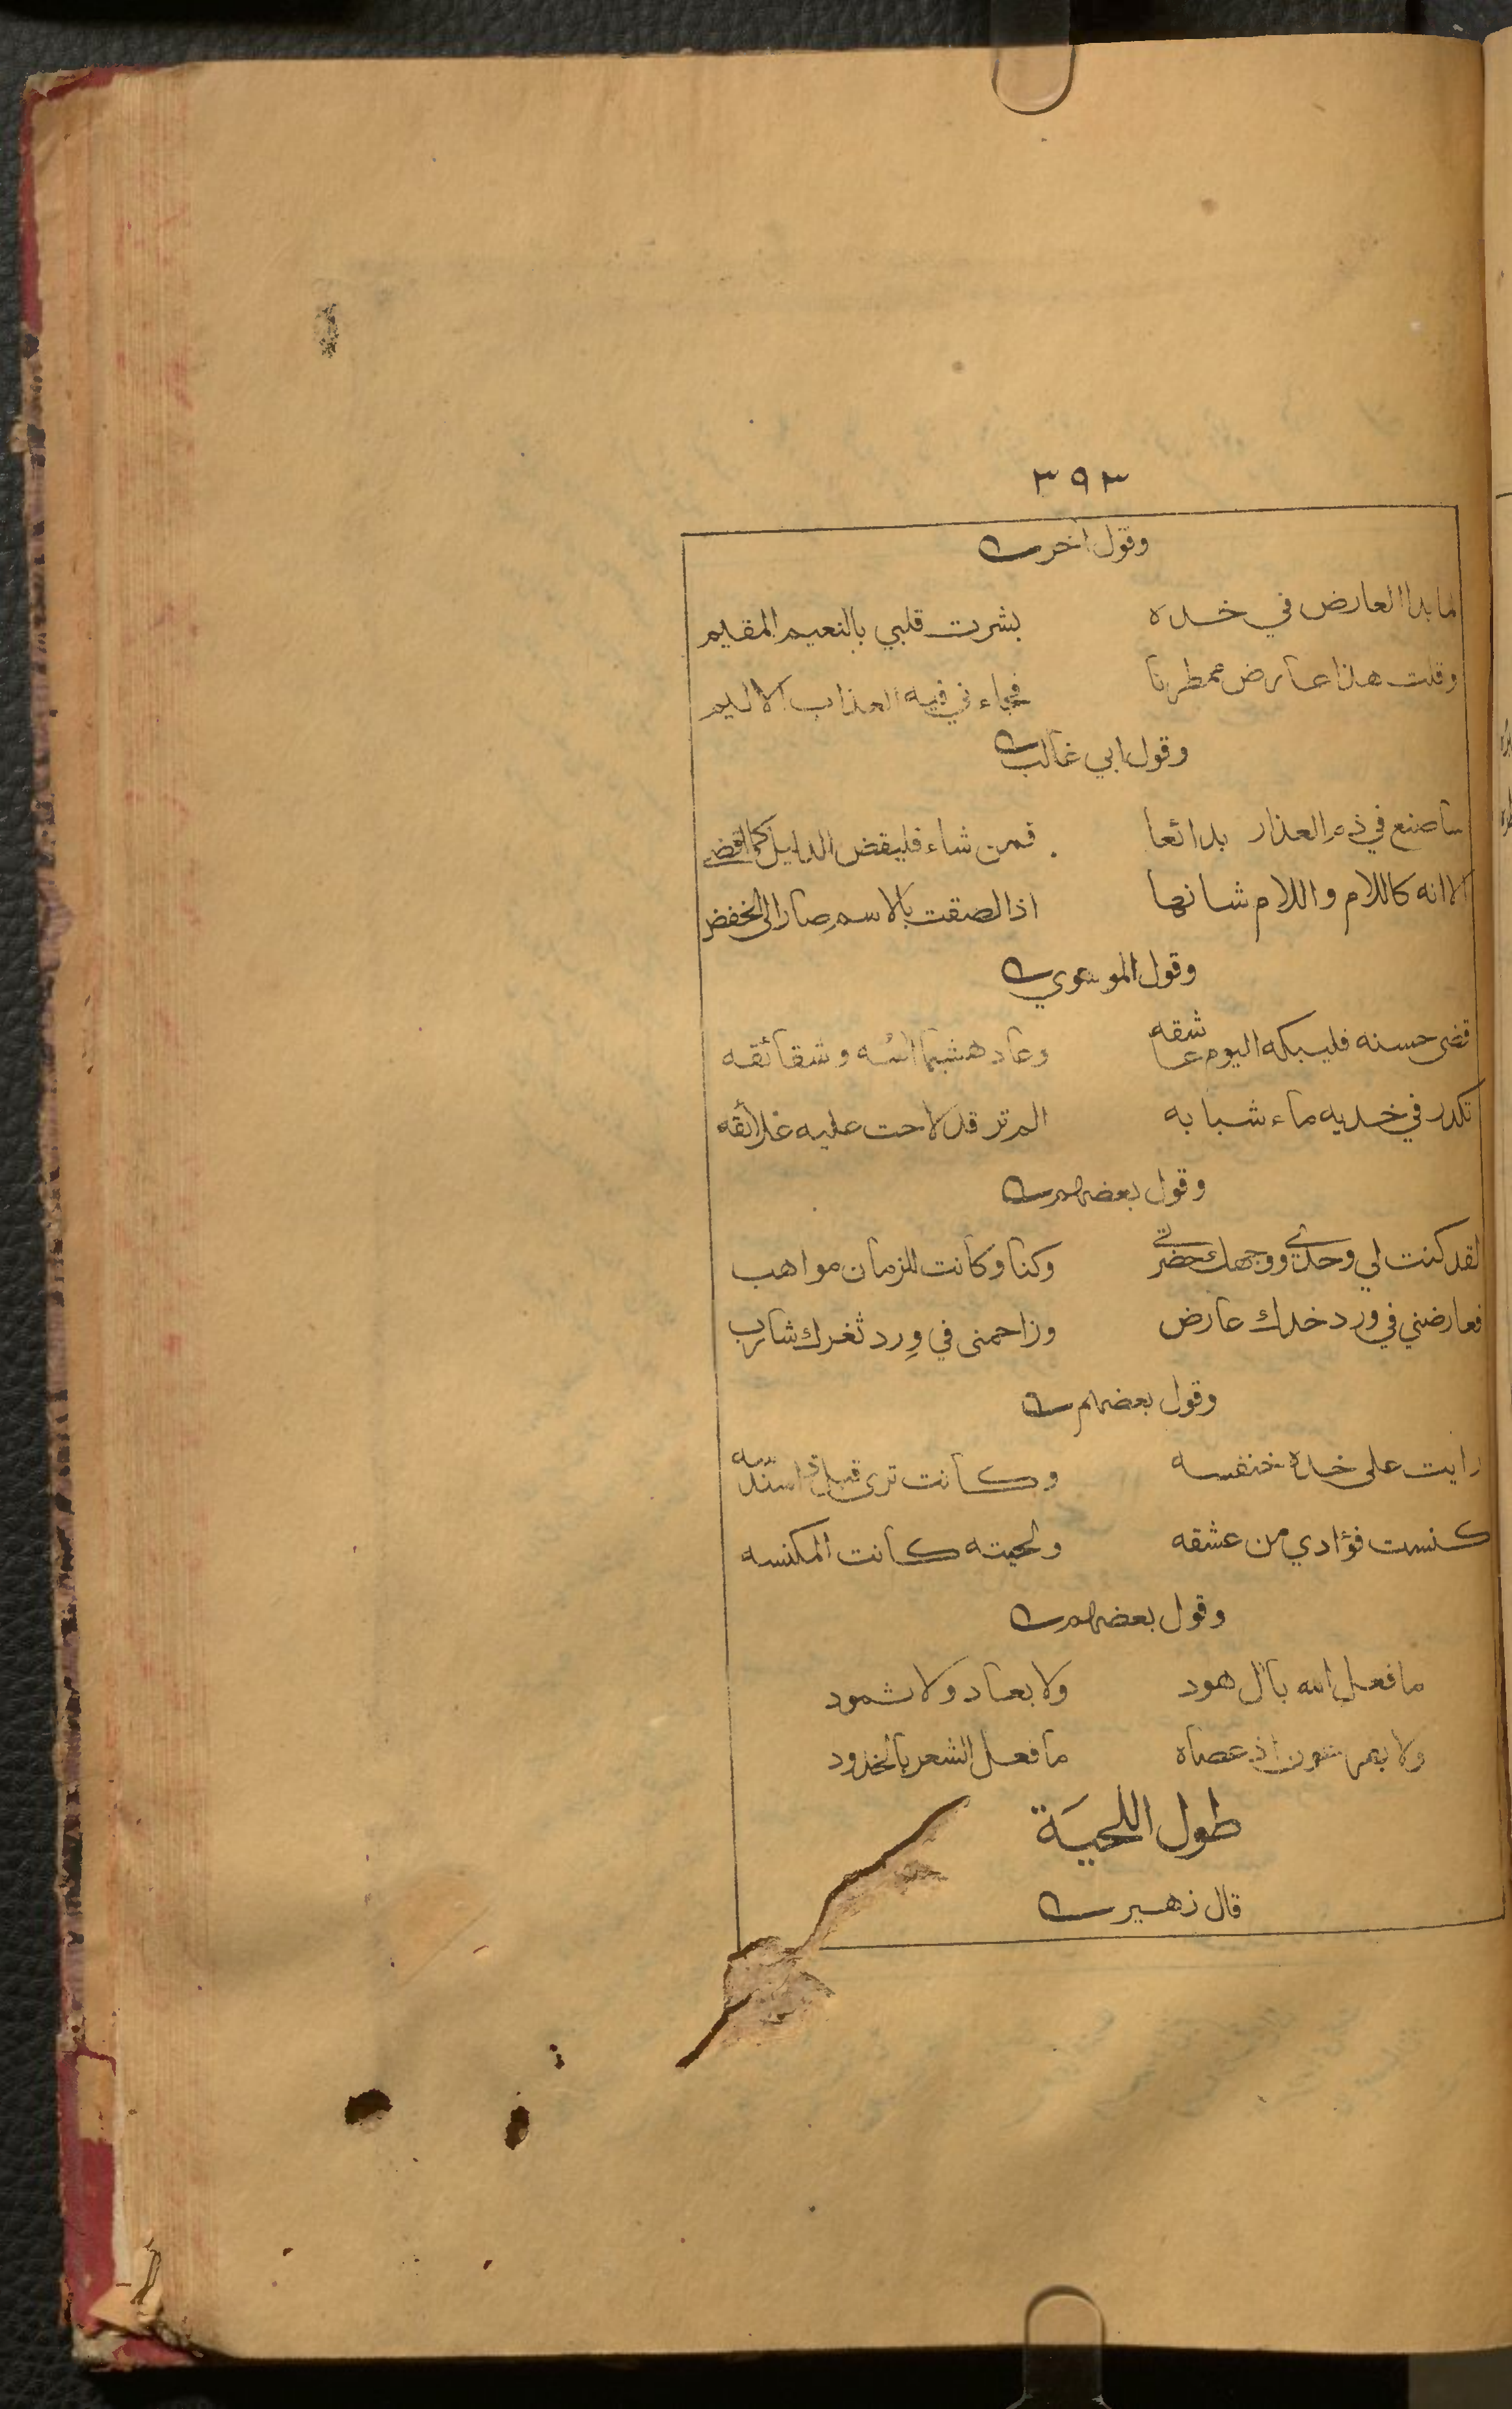 ٣٩٣
وقول اخر
لما بدا العارض في خده بشرت قلبي بالنعيم المقيم
وقلت هذا عارض ممطرنا فجاءني فيه العذاب الاليم
وقول ابي غالب
ساصنع في ذم العذار بدائعا فمن شاء فليقض الدليل كما اقضى
الا انه كاللام واللام شانها اذا لصقت بالاسم صار الى الخفض
وقول الموسوي
قضى حسنه فليبكه اليوم عاشقه وعاد هشيما آسه وشقائقه
تكدر في خديه ماء شبابه الم تر قد لاحت عليه غلائقه
وقول بعضهم
لقد كنت لي وحدي ووجهك حضرتي وكنا وكانت للزمان مواهب
فعارضني في ورد خدك عارض وزاحمني في وِرد ثغرك شارب
وقول بعضهم
رايت على خده خنفسه وكانت ترى قبل ذا سندسه
كنست فؤادي من عشقه ولحيته كانت المكنسه
وقول بعضهم
ما فعل الله بآل هود ولا بعاد ولا ثمود
ولا بفرعون اذ عصاه ما فعل الشعر بالخدود
طول اللحيَة
قال زهير